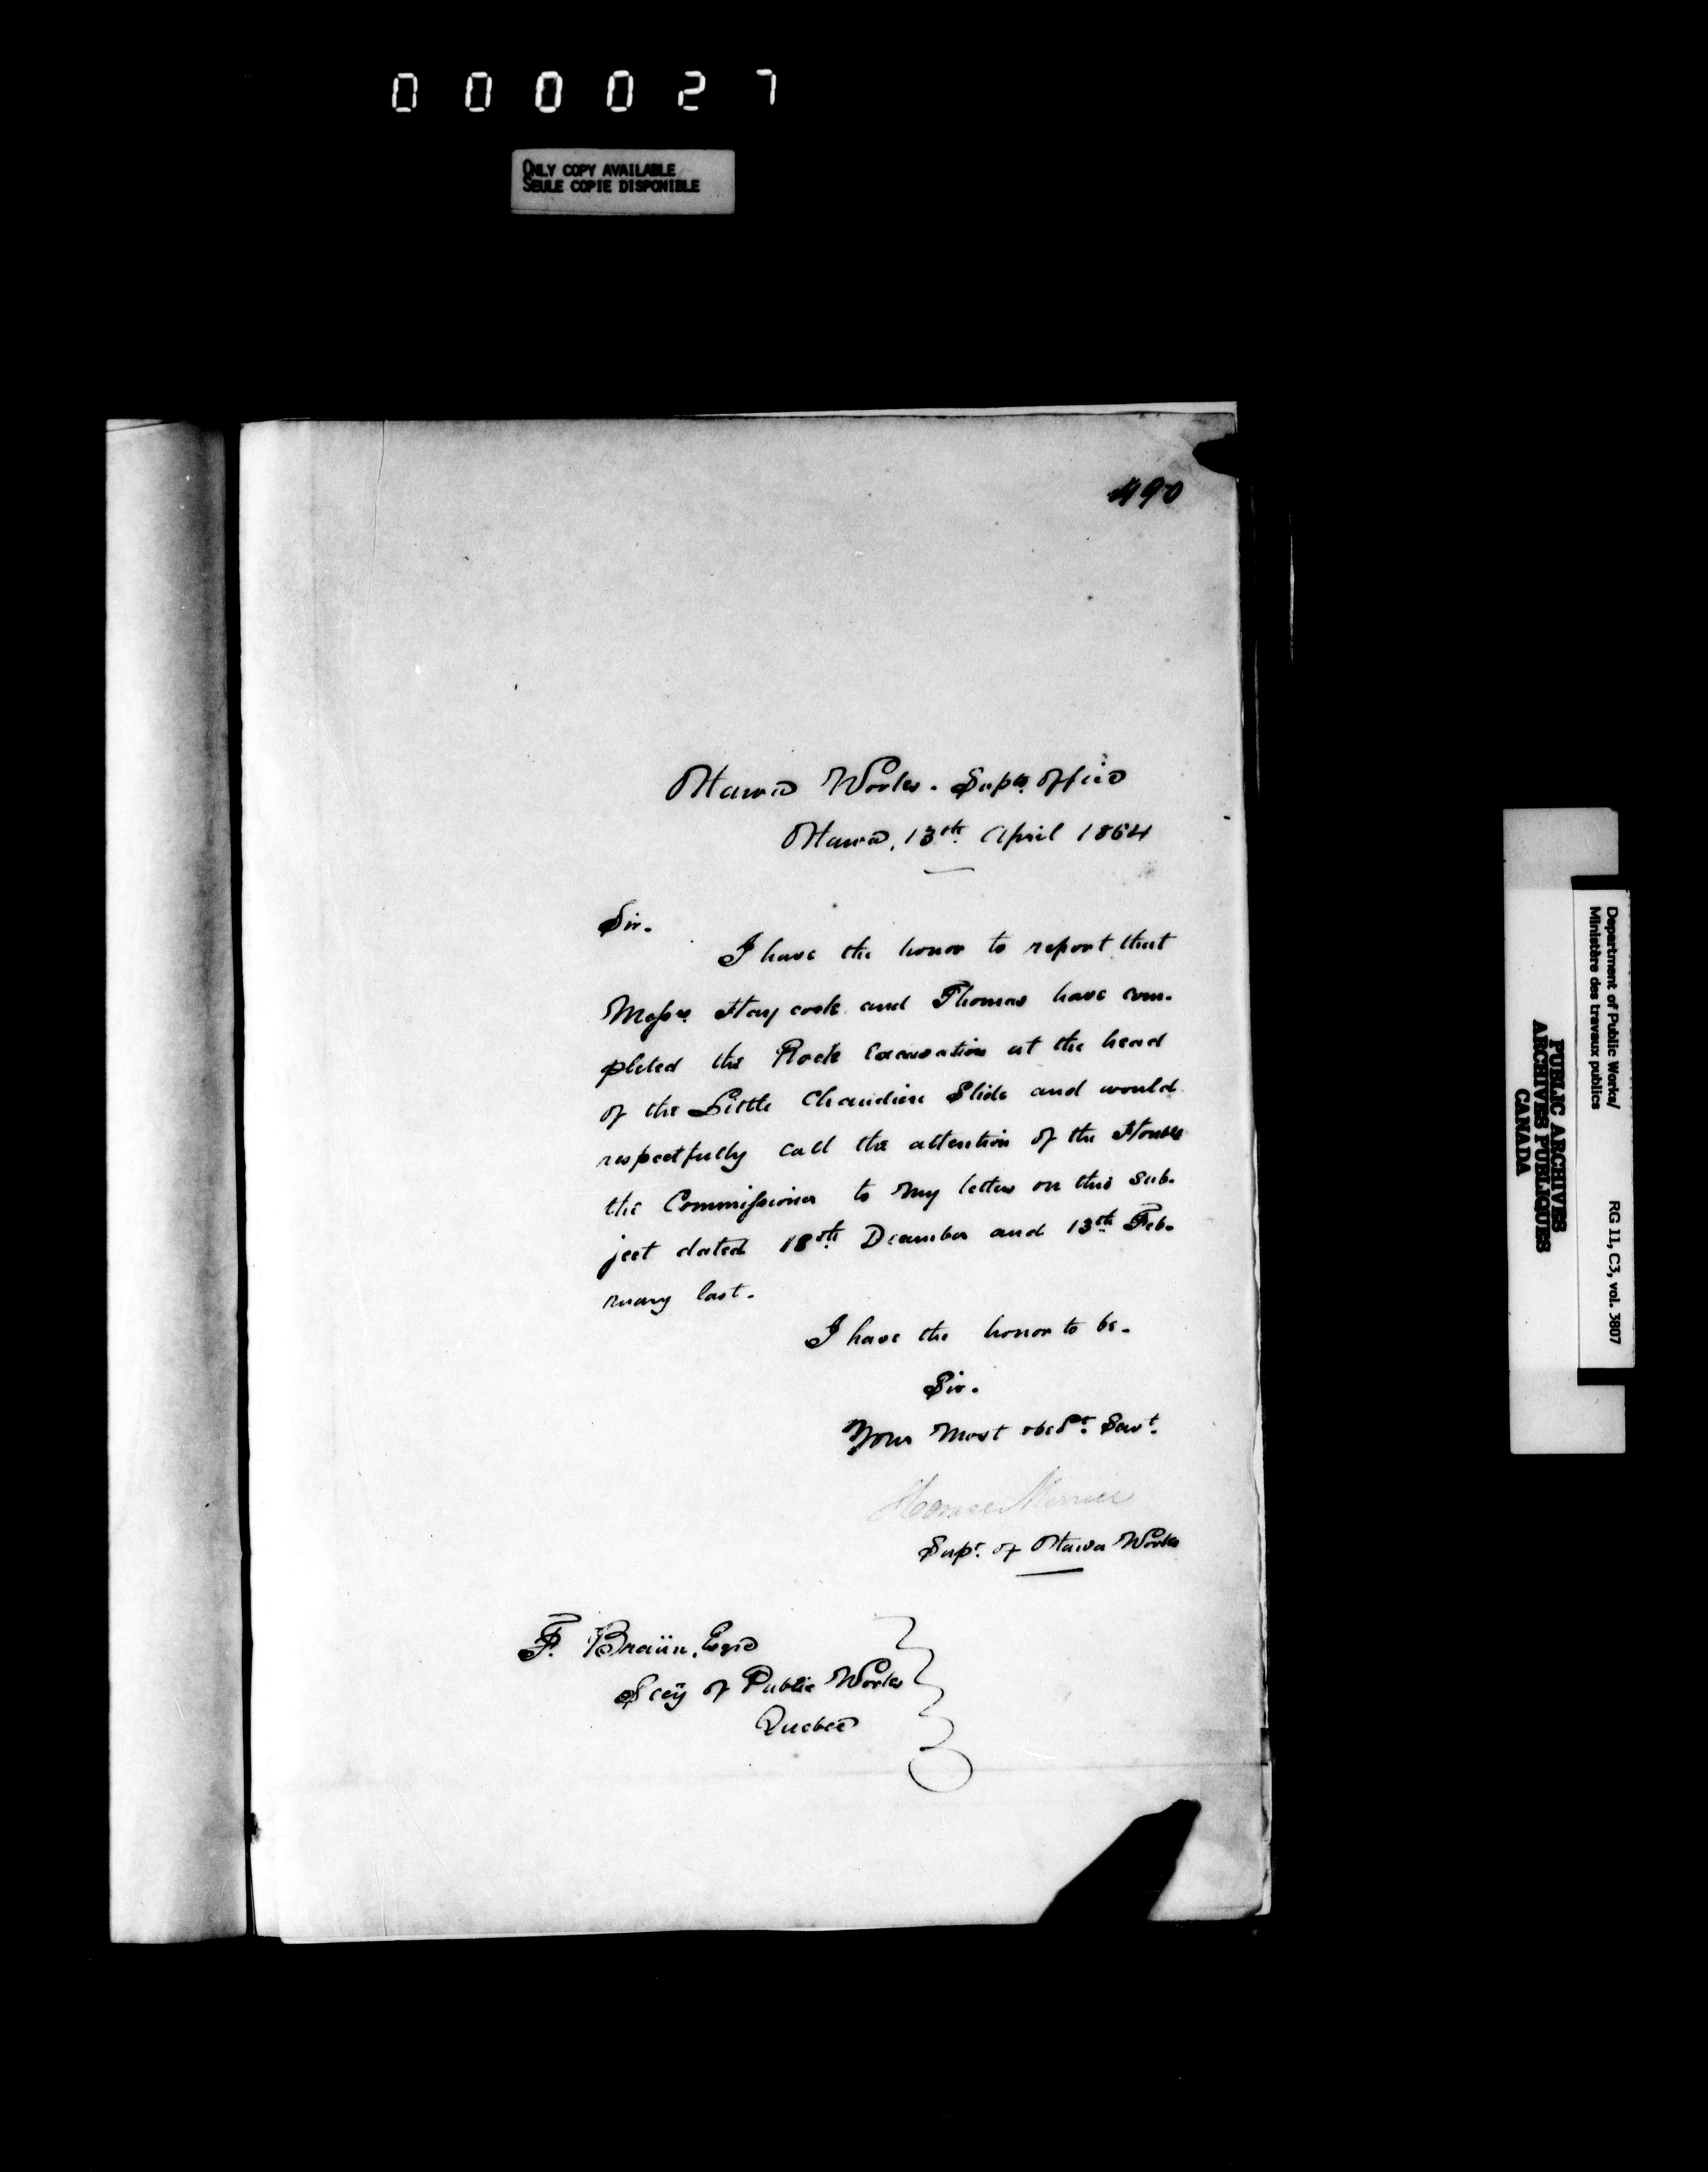 000027
ONLY COPY AVAILABLE
SEULE COPIE DISPONIBLE
490
Ottawa Works. Supts. Office
Ottawa, 13th April 1864
Sir.
I have the honor to report that
Messrs. Haycock and Thomas have com-
pleted the Rock Excavation at the head
of the Little Chaudiere Slide and would
respectfully call the attention of the Honble
the Commissioner to my letters on this sub-
ject dated 18th December and 13th Feb-
ruary last.
I have the honor to be.
Sir.
Your Most obedt. Servt.
Horace Merrill
Supt. of Ottawa Works
F. Braün, Esqre
Secy of Public Works
Quebec
Department of Public Works/
Ministère des travaux publics
RG 11, C3, vol. 3807
PUBLIC ARCHIVES
ARCHIVES PUBLIQUES
CANADA